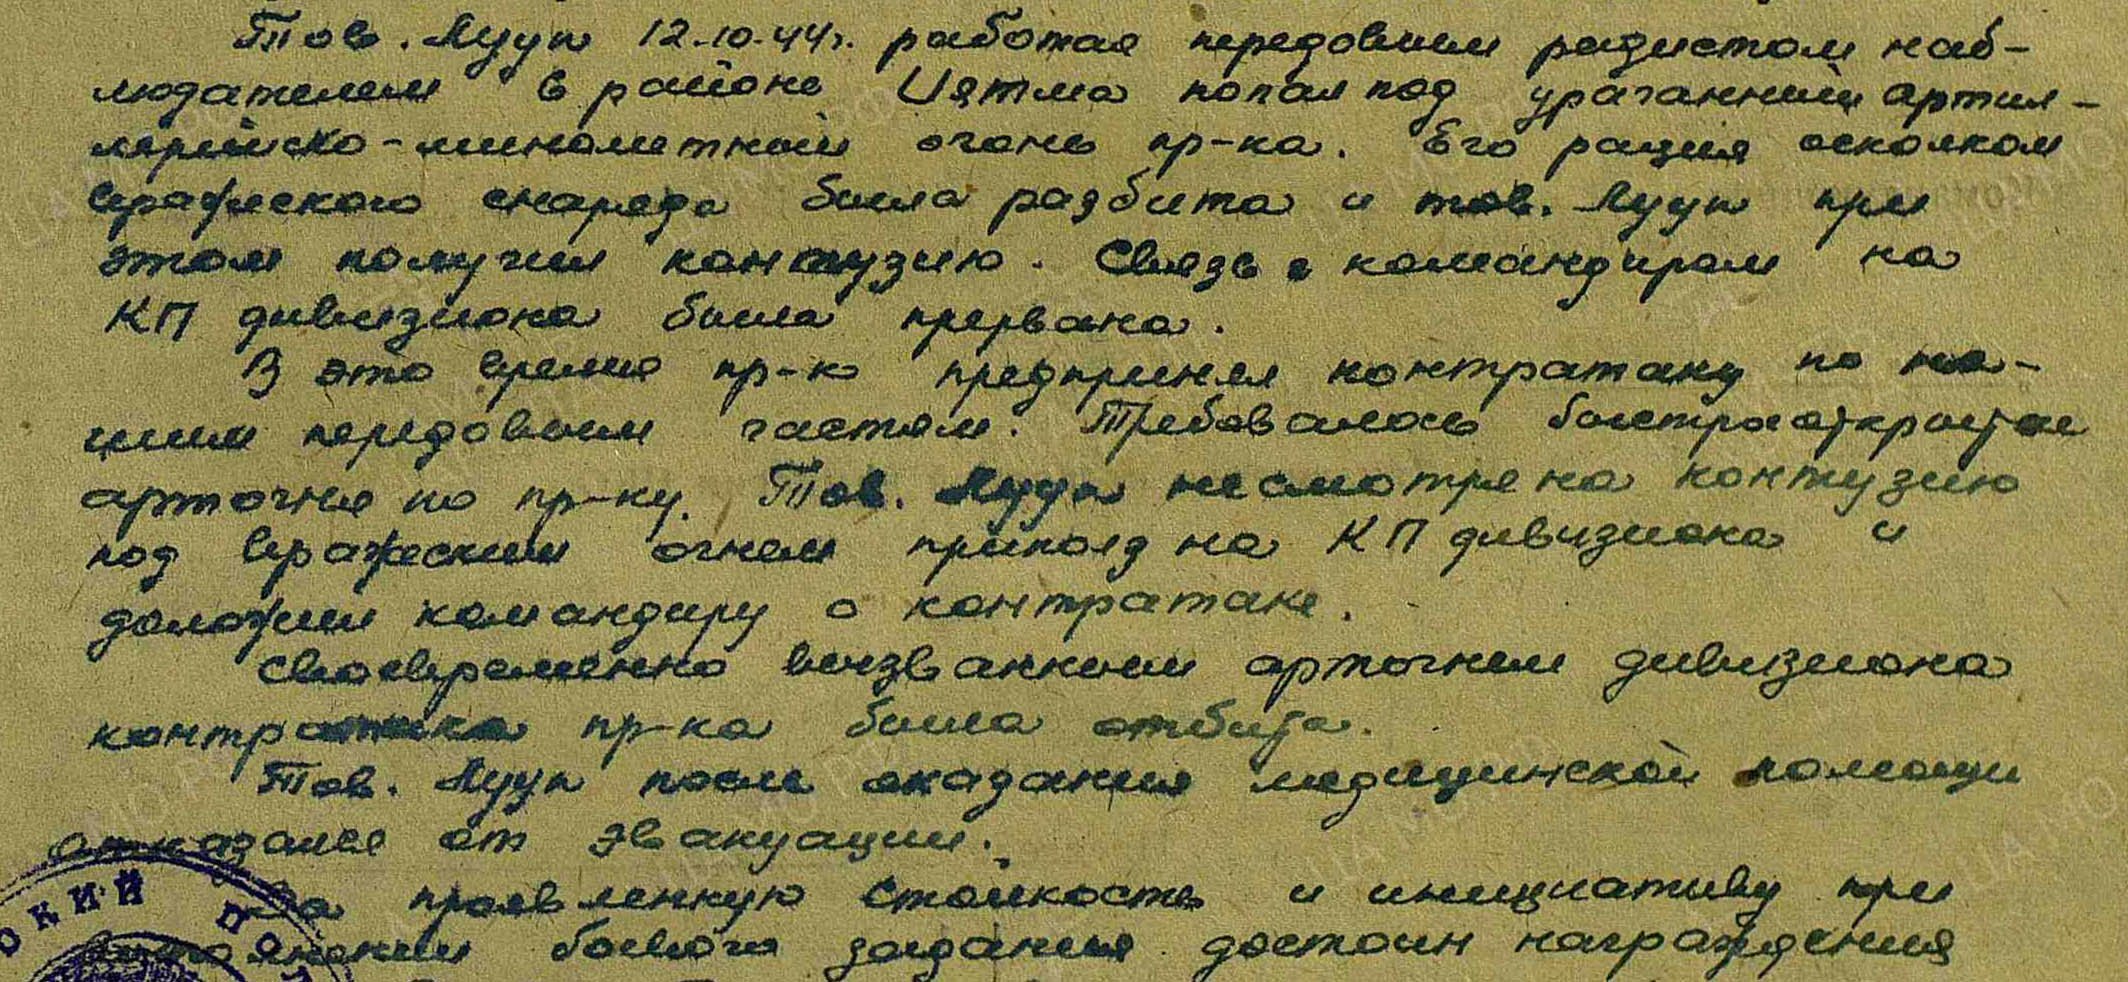 Тов. Муук 12.10.44г. работая передовым радистом наб-
людателем в районе Иятма попал под ураганный артил-
лерийско-минометный огонь пр-ка. Его рация осколком
вражеского снаряда была разбита и тов. Муук при
этом получил контузию. Связь с командиром на
КП дивизиона была прервана.
В это время пр-к предпринял контратаку по на-
шим передовым частям. Требовалось быстрое открытие
артогня по пр-ку. Тов. Муук несмотря на контузию
под вражеским огнем приполз на КП дивизиона и
доложил командиру о контратаке.
Своевременно вызванным артогнем дивизиона
контратака пр-ка была отбита.
Тов. Муук после оказания медицинской помощи
отказался от эвакуации.
За проявленную стойкость и инициативу при
выполнении боевого задания достоин награждения